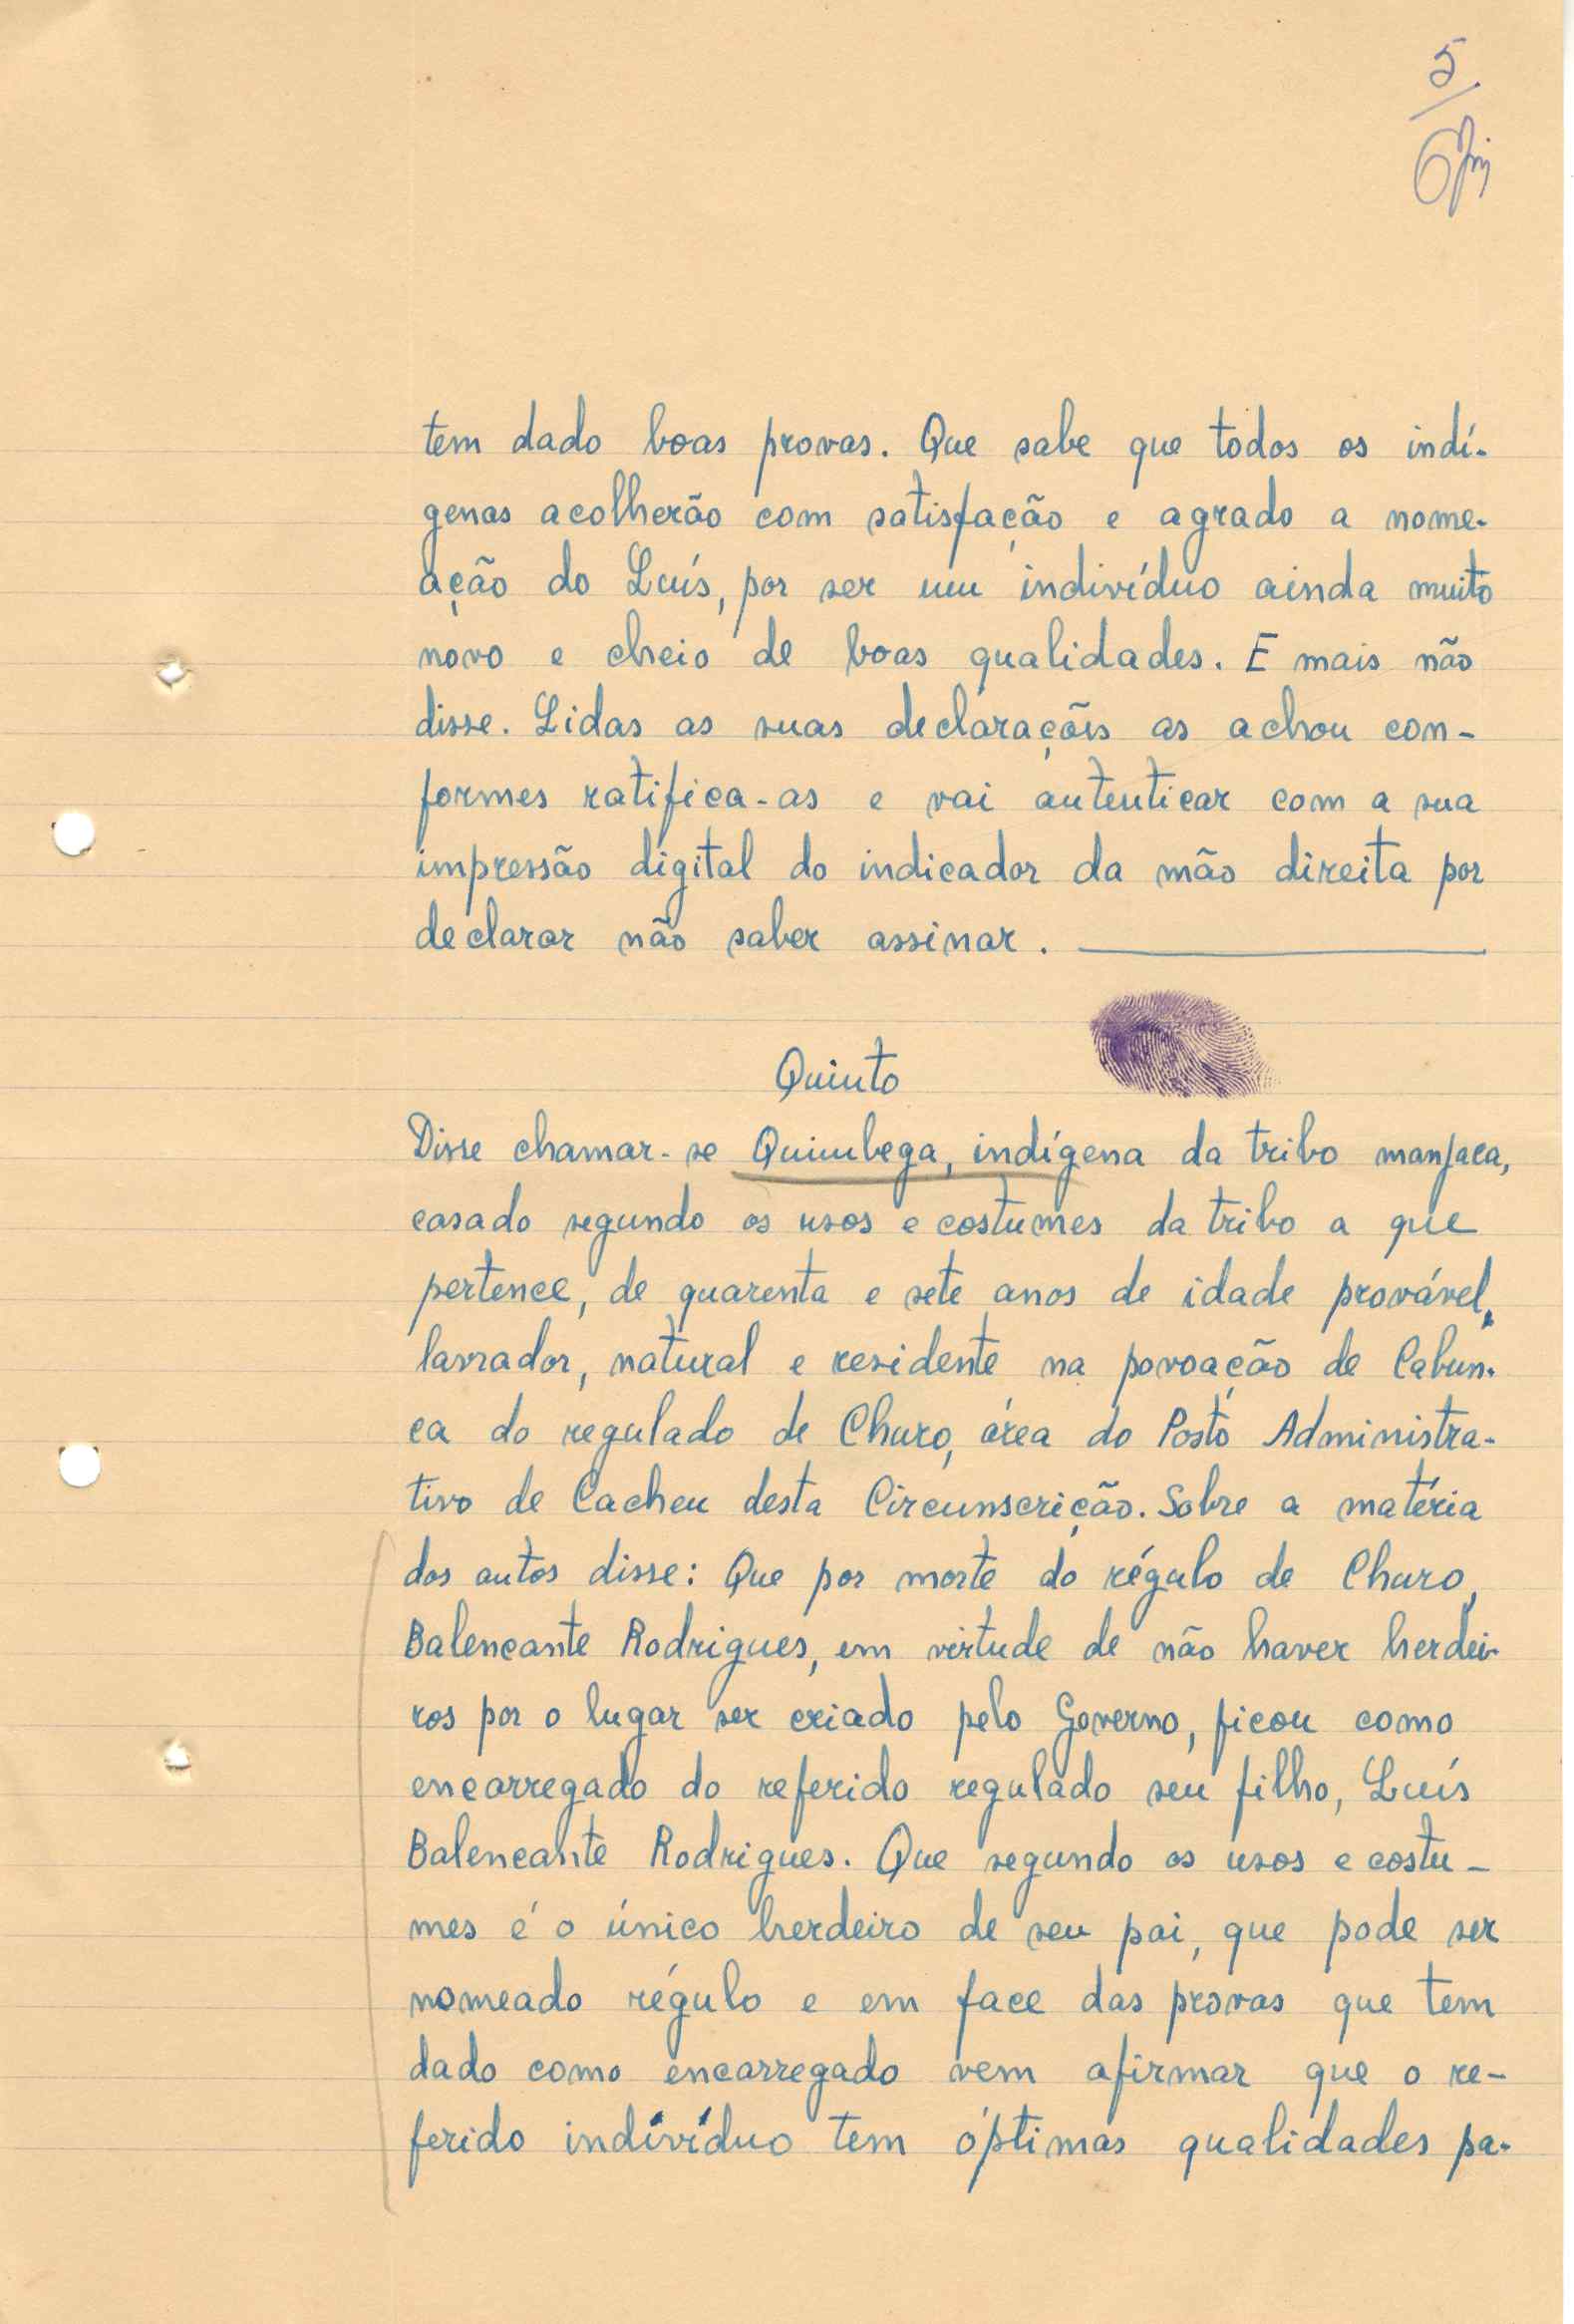 5
tem dado boas provas. Que sabe que todos os indí-
genas acolherão com satisfação e agrado a nome-
ação do Luís, por ser um indivíduo ainda muito
novo e cheio de boas qualidades. E mais não
disse. Lidas as suas declarações as achou con-
formes ratifica-as e vai autenticar com a sua
impressão digital do indicador da mão direita por
declarar não saber assinar.
Quinto
Disse chamar-se Quimbega, indígena da tribo manjaca,
casado segundo os usos e costumes da tribo a que
pertence, de quarenta e sete anos de idade provável,
lavrador, natural e residente na povoação de Cabun-
ca do regulado de Churo, área do Posto Administra-
tivo de Cacheu desta Circunscrição. Sobre a matéria
dos autos disse: Que por morte do régulo de Churo,
Balencante Rodrigues, em virtude de não haver herdei-
ros por o lugar ser criado pelo Governo, ficou como
encarregado do referido regulado seu filho, Luís
Balencante Rodrigues. Que segundo os usos e costu-
mes é o único herdeiro de seu pai, que pode ser
nomeado régulo e em face das provas que tem
dado como encarregado vem afirmar que o re-
ferido indivíduo tem óptimas qualidades pa-